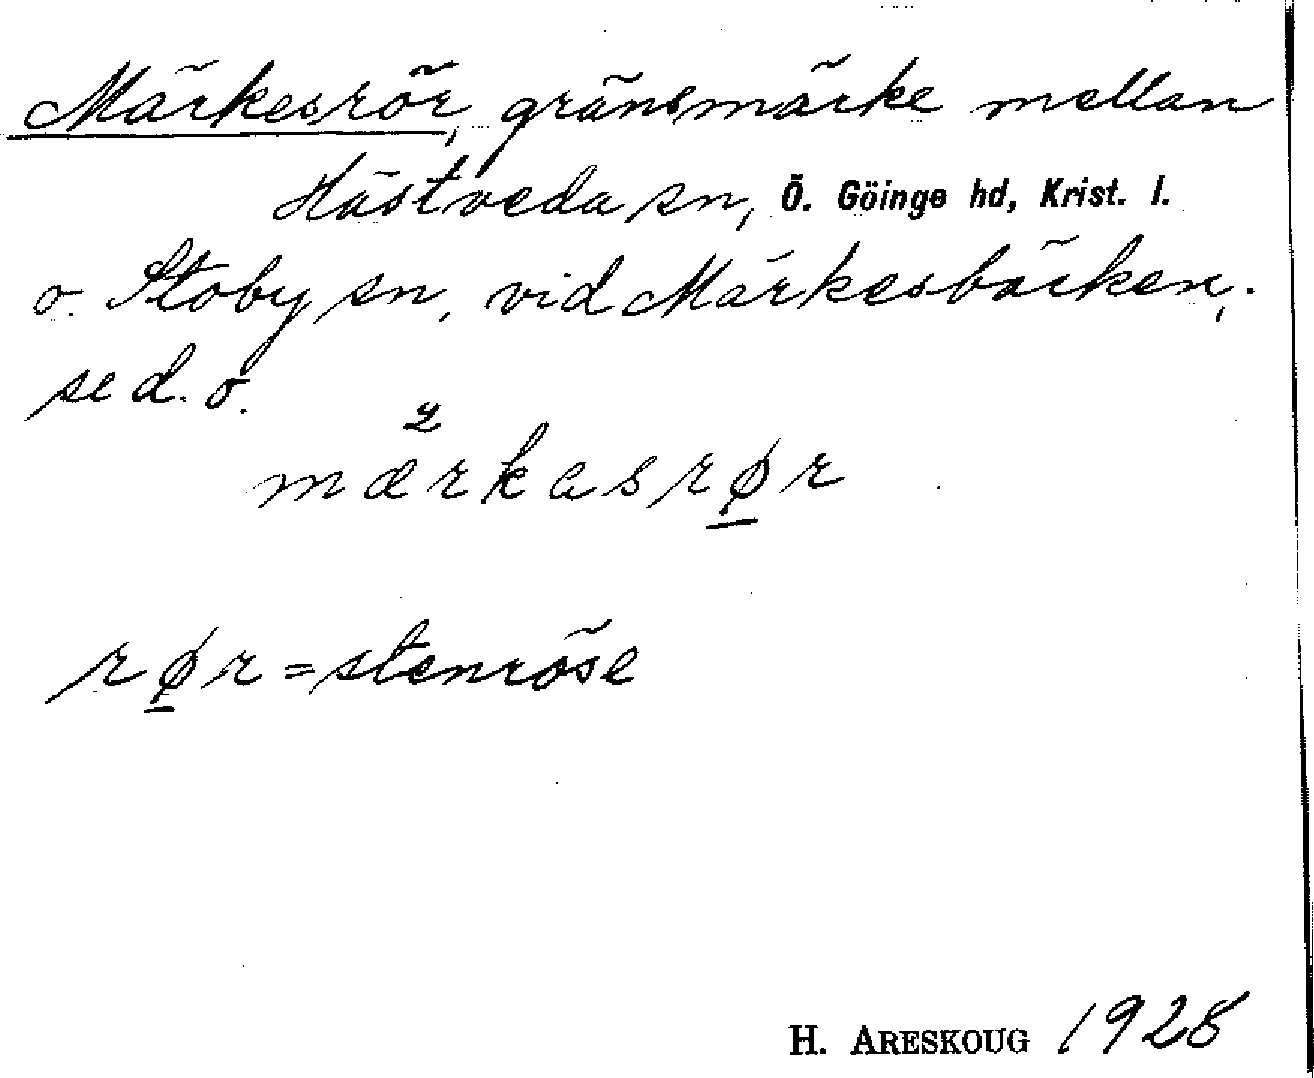 Märkesrör, gränsmärke mellan
Hästveda sn, Ö. Göinge hd, Krist. l.
o. Stoby sn, vid Märkesbäcken,.
se d. o.
2
mærkasrø̲r
rø̲r = stenröse
H. ARESKOUG 1928